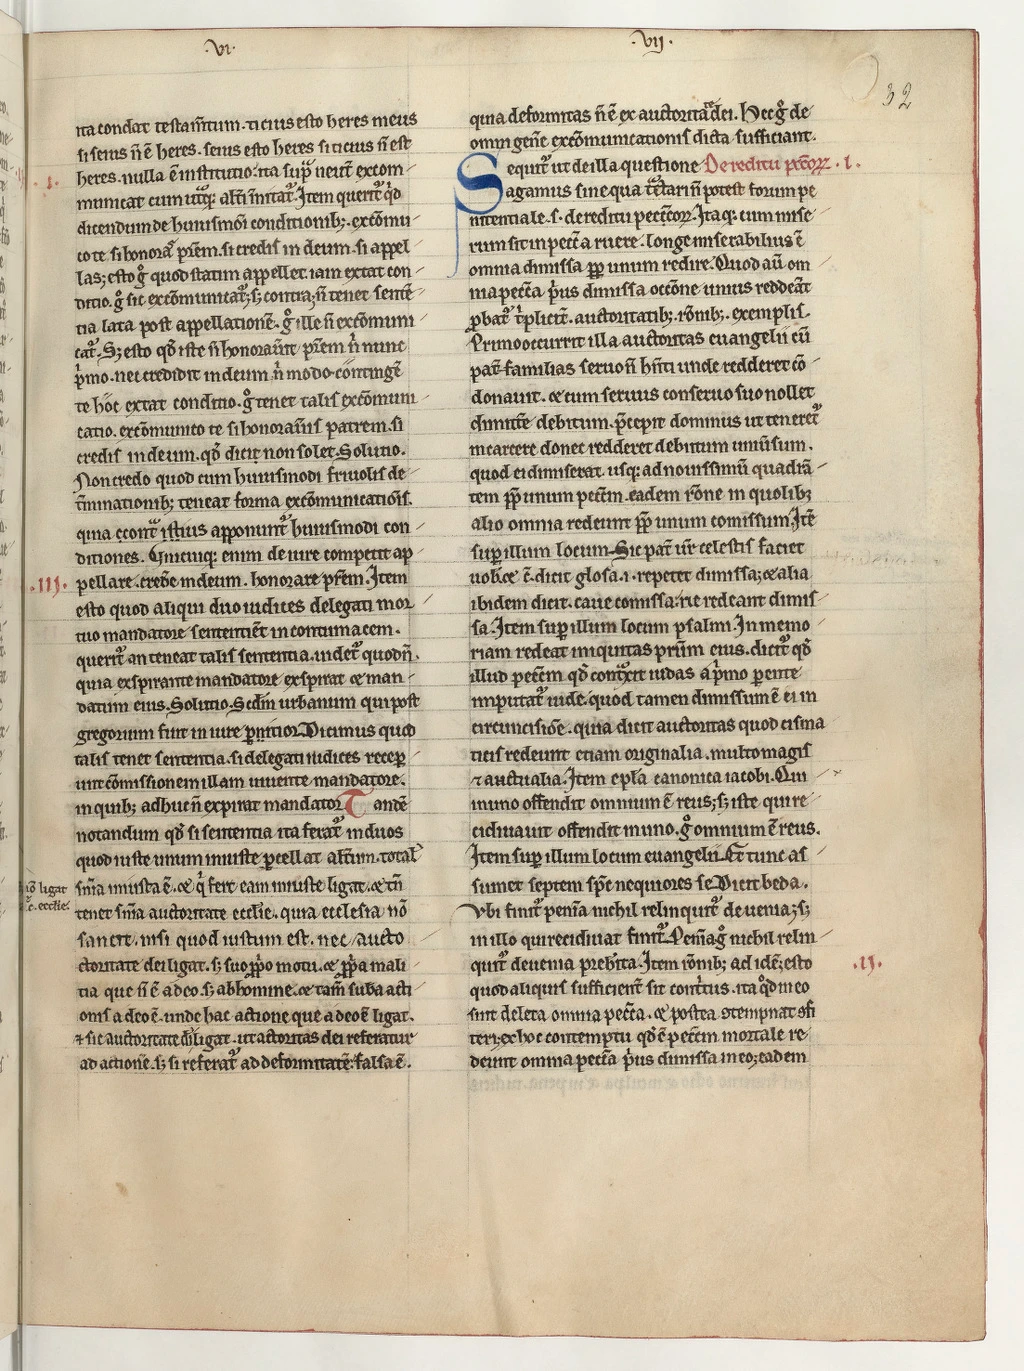 .vi.
ita condat testam̄tum. ticius esto heres meus
si seius ñ ē heres. seius esto heres si ticius ñ est
heres. nulla ē institutio. ita sup̄ neut̄ excom
municat cum utq̄ʒ alt̄i īnitat̄. Item querit̄ qͥd
.i.
dicendum de huiusmōi conditionibʒ. excōmu
co te si honoraˢ pr̄em. si credis in deum. si appel
las; esto gͦ quod statim appellet. iam extat con
ditio. gͦ sic excōmunicat̄; sʒ contra; ñ tenet sentē
tia lata post appellationē. gͦ ille ñ excōmuni
cat̄. Sʒ esto qđ iste ñ honorauit pr̄em ñ nunc
p̄mo. nec credidit in deum ñ modo. contingē
te hōc extat conditio. gͦ tenet talis excōmuni
catio. excōmunico te si honoraũis patrem. si
credis in deum. qđ dicit non solet. Solutio.
Non credo quod cum huiusmodi friuolis de
t̄minationibʒ teneat forma excōmunicatiōis.
quia econt̄ istius apponunt̄ huiusmodi con
ditiones. Unicuiqʒ enim de iure competit ap
.iij.
pellare. credẽ in deum. honorare pr̄em. Item
esto quod aliqui duo iudices delegati mor
tuo mandatore sententiēt in contumacem.
querit̄ an teneat talis sententia. uidet̄ quod ñ.
quia exspirante mandatore exspirat & man
datum eius. Solutio. Sc̄dm urbanum qui post
gregorium fuit in iure p̄ritior. Dicimus quod
talis tenet sententia. si delegati iudices recep̄
unt cōmissionem illam uiuente mandatore.
in quibʒ adhuc ñ expirat mandator. Tandē
notandum qđ si sententia ita ferat̄ in duos
quod iuste unum iniuste p̱cellat alt̄um. total̄
sñia iniusta ē. & qͥ fert eam iniuste ligat. & tñ
iō ligat
.c. eccl̄ie.
tenet sñia auctoritate eccl̄ie. quia ecclesia nō
sancit. nisi quod iustum est. nec aucto
ctoritate dei ligat. sʒ suo ꝓp̄o motu. & ꝓp̄a mali
tia que ñ ē a deo. sʒ ab homine. & tam̄ sub acti
onis a deo ē. unde hac actione que a deo ē ligat.
& sic auctoritate dei ligat. ut actoritas dei referatur
ad actionē. sʒ si referat̄ ad deformitatē. falsa ē.
.vij.
32
quia deformitas ñ ē ex auctoritate dei. Hec gͦ de
omni geñe excōmunicationis dicta sufficiant.
Sequit̄ ut de illa questione De reditu pcc̄oꝝ .i.
agamus sine qua tc̄tari ñ potest forum pe
nitentiale. s. de reditu pecc̄coꝝ. Itaqʒ cum mise
rum sit in pecc̄a ruere. longe miserabilius ē
omnia dimissa ꝓp̄ unum redire. Quod aũ om
nia pecc̄a p̄us dimissa occ̄one unius reddeāt
ꝓbat̄ t̄plicit̄. auctoritatibʒ. rōnibʒ. exemplis.
Primo occurrit illa auctoritas euangelii cū
pat̄ familias seruo ñ hñti unde redderet cō
donauit. & cum seruus conseruo suo nollet
dimitt̄e debitum. p̄cepit dominus ut teneret̄
in carcere donec redderet debitum uniūsum.
quod ei dimiserat. usqʒ ad nouissimū quadrā
tem ꝓp̄ unum pecc̄m. eadem rōne in quolibʒ
alio omnia redeunt ꝓp̄ unum comissum. Itē
sup̱ illum locum. Sic pat̄ ur̄ celestis faciet
uob. & c̄. dicit glosa. i. repetet dimissa; & alia
ibidem dicit. caue comissa. ne redeant dimis
sa. Item sup̱ illum locum psalmi. In memo
riam redeat iniquitas pr̄um eius. dicit̄ qđ
illud pecc̄m qđ cont̄xit iudas a p̄mo parente
imputat̄ iude. quod tamen dimissum ē ei in
circuncisiōe. quia dicit auctoritas quod cisma
ticis redeunt etiam originalia. multo magis
& actualia. Item epl̄a canonica iacobi. Qui
in uno offendit omnium ē reus; sʒ iste qui re
cidiuauit offendit in uno. gͦ omnium ē reus.
Item sup̱ illum locum euangelii. Et tunc as
sumet septem sp̄c nequiores se. Dicit beda.
Vbi finit̄ penīa nichil relinquit̄ de uenia; sʒ
in illo qui recidiuat finit̄ penīa gͦ nichil relin
quit̄ de uenia prebita. Item rōnibʒ ad idē; esto
.ij.
quod aliquis sufficient̄ sit contritus. ita qđ in eo
sint deleta omnia pecc̄a. & postea ↄtempnat ↄfi
teri; ex hoc contemptu qđ ē pecc̄m mortale re
deunt omnia pecc̄a p̄us dimissa in eo; eadem